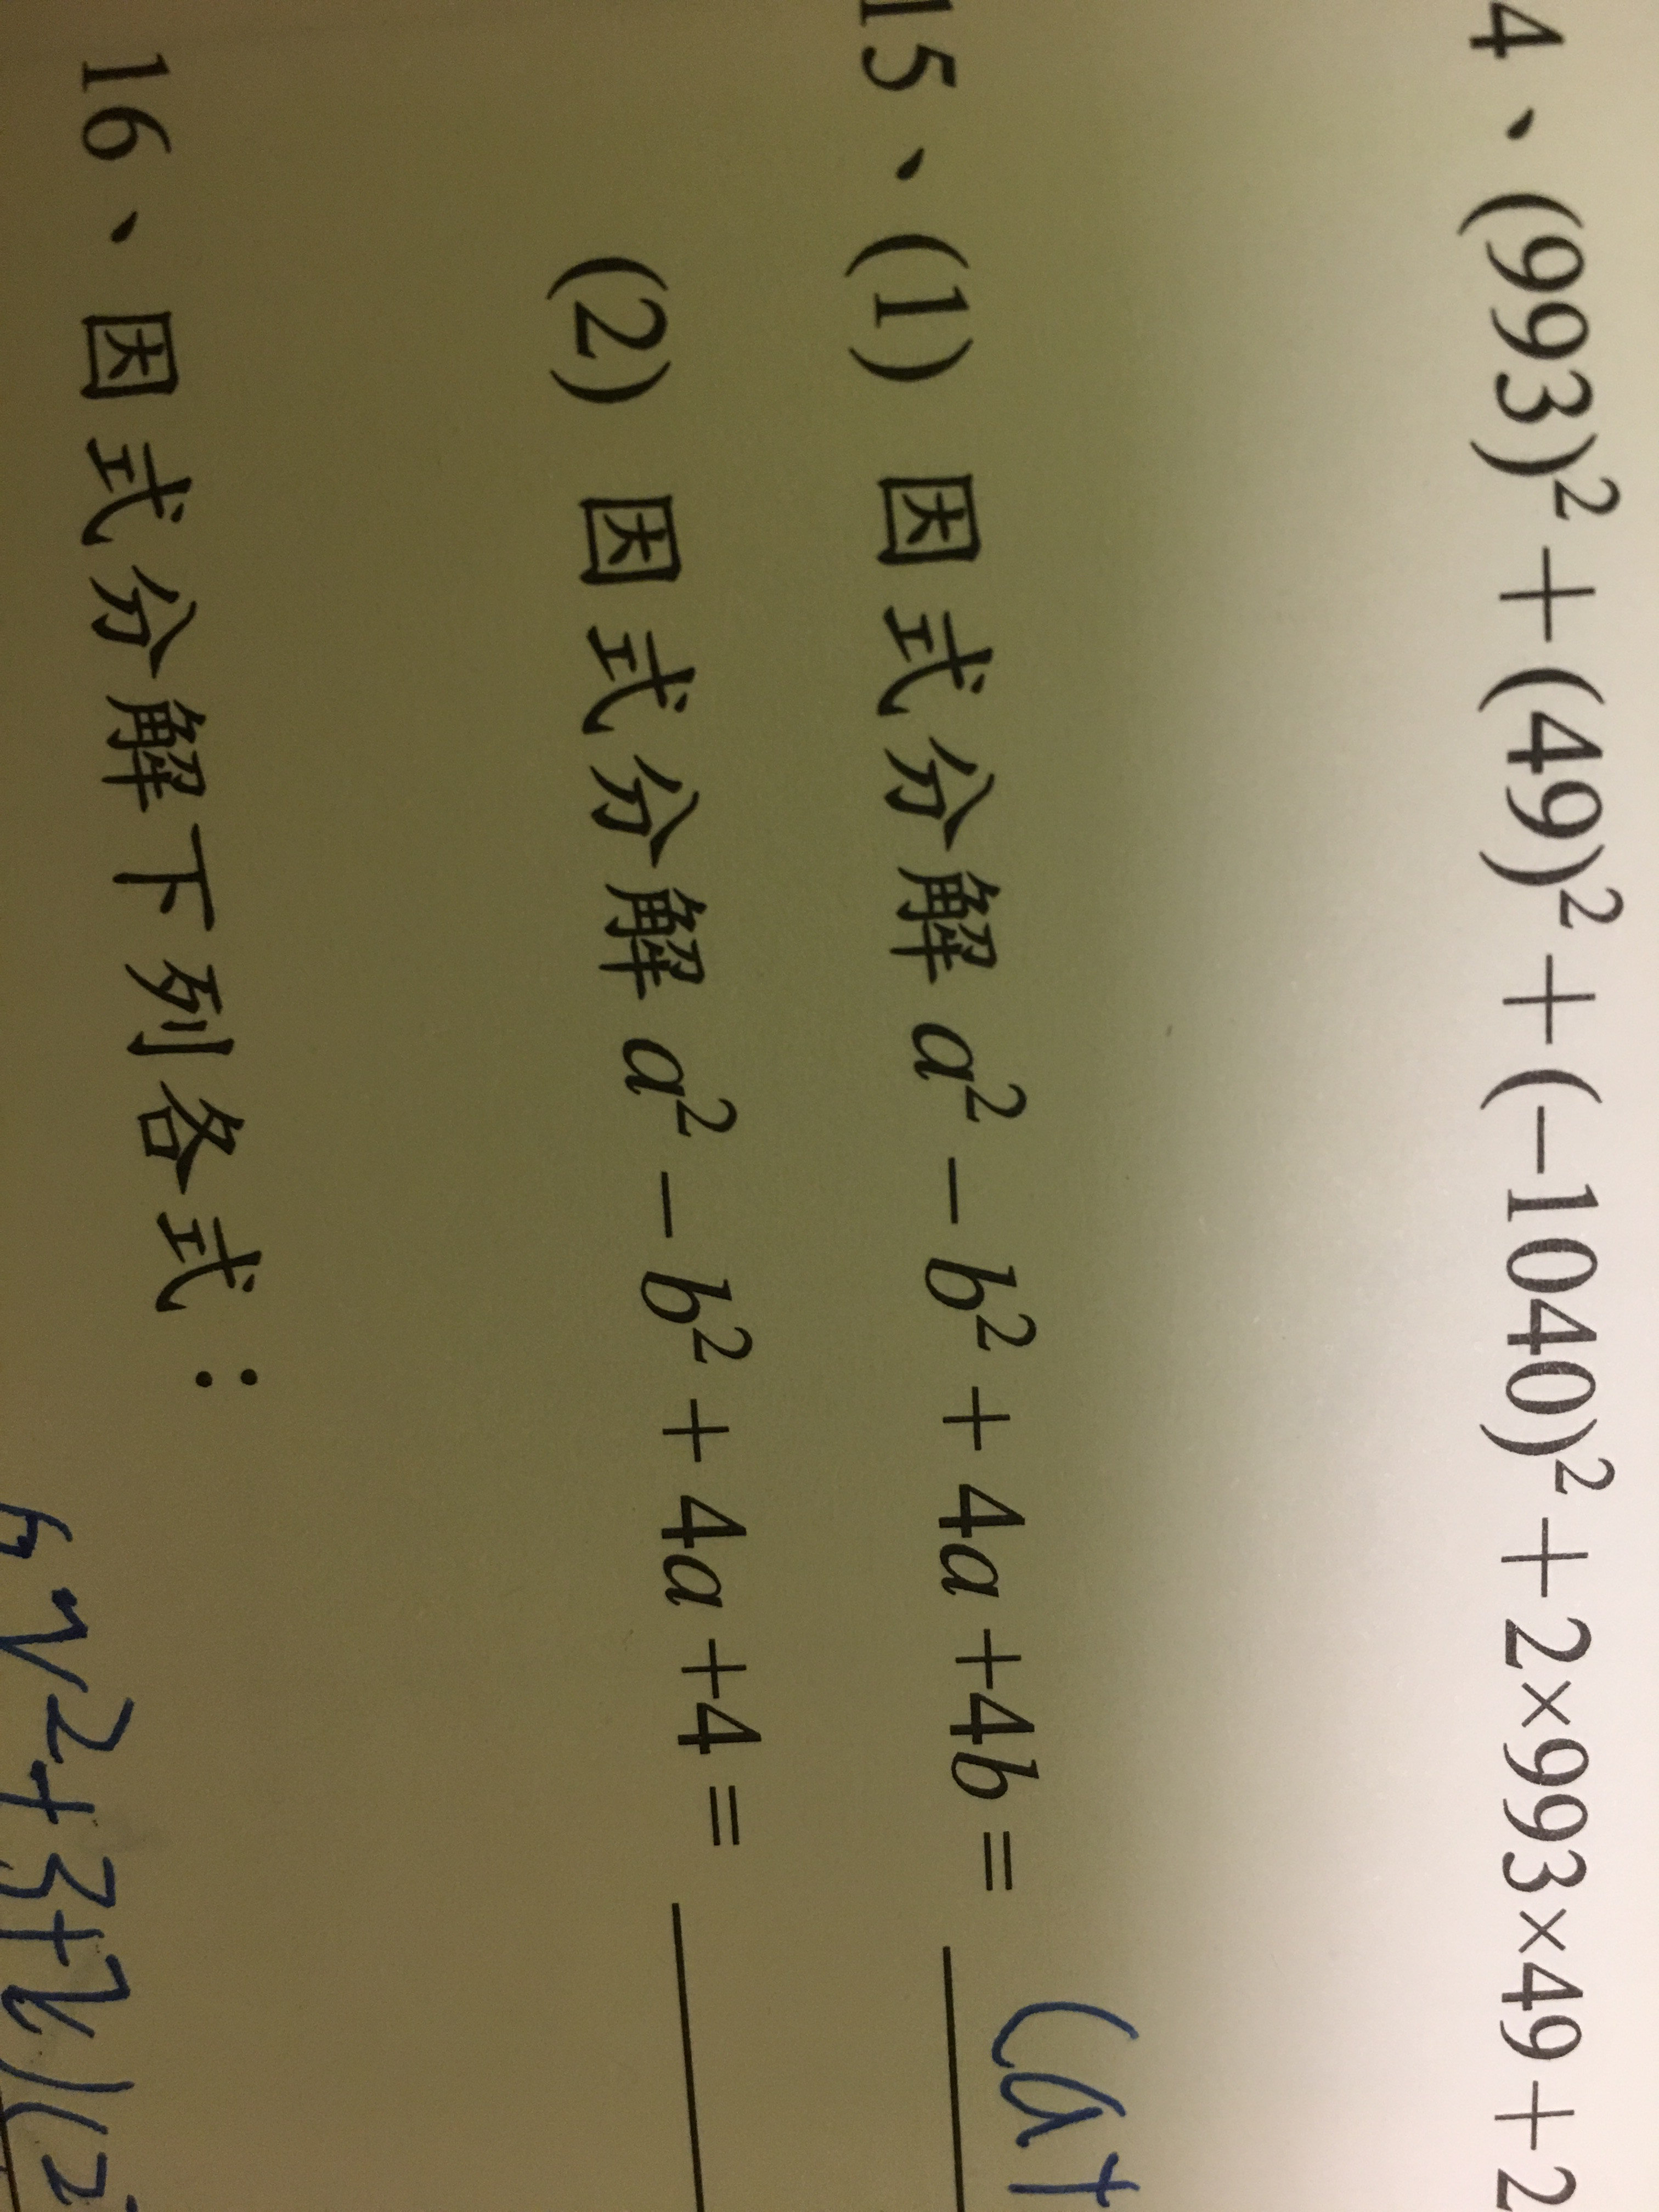 4、(993)²+(49)²+(−1040)²+2×993×49+2
15、(1) 因式分解 a²−b²+4a+4b= (a+
(2) 因式分解 a²−b²+4a+4=
16、因式分解下列各式：